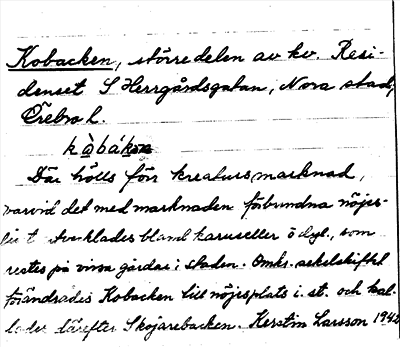 Kobacken, större delen av kv. Resi-
denset S Herrgårdsgatan, Nora stad,
Örebro l.
kàbákən
Där hölls förr kreatursmarknad,
varvid det med marknaden förbundna nöjes-
utvecklades bland karuseller o dyl., som
restes på vissa gårdar i staden. Omkr. sekelskiftet
förändrades Kobacken till nöjesplats i. st. och kal-
lades därefter Skojarebacken. Kerstin Larsson 1942